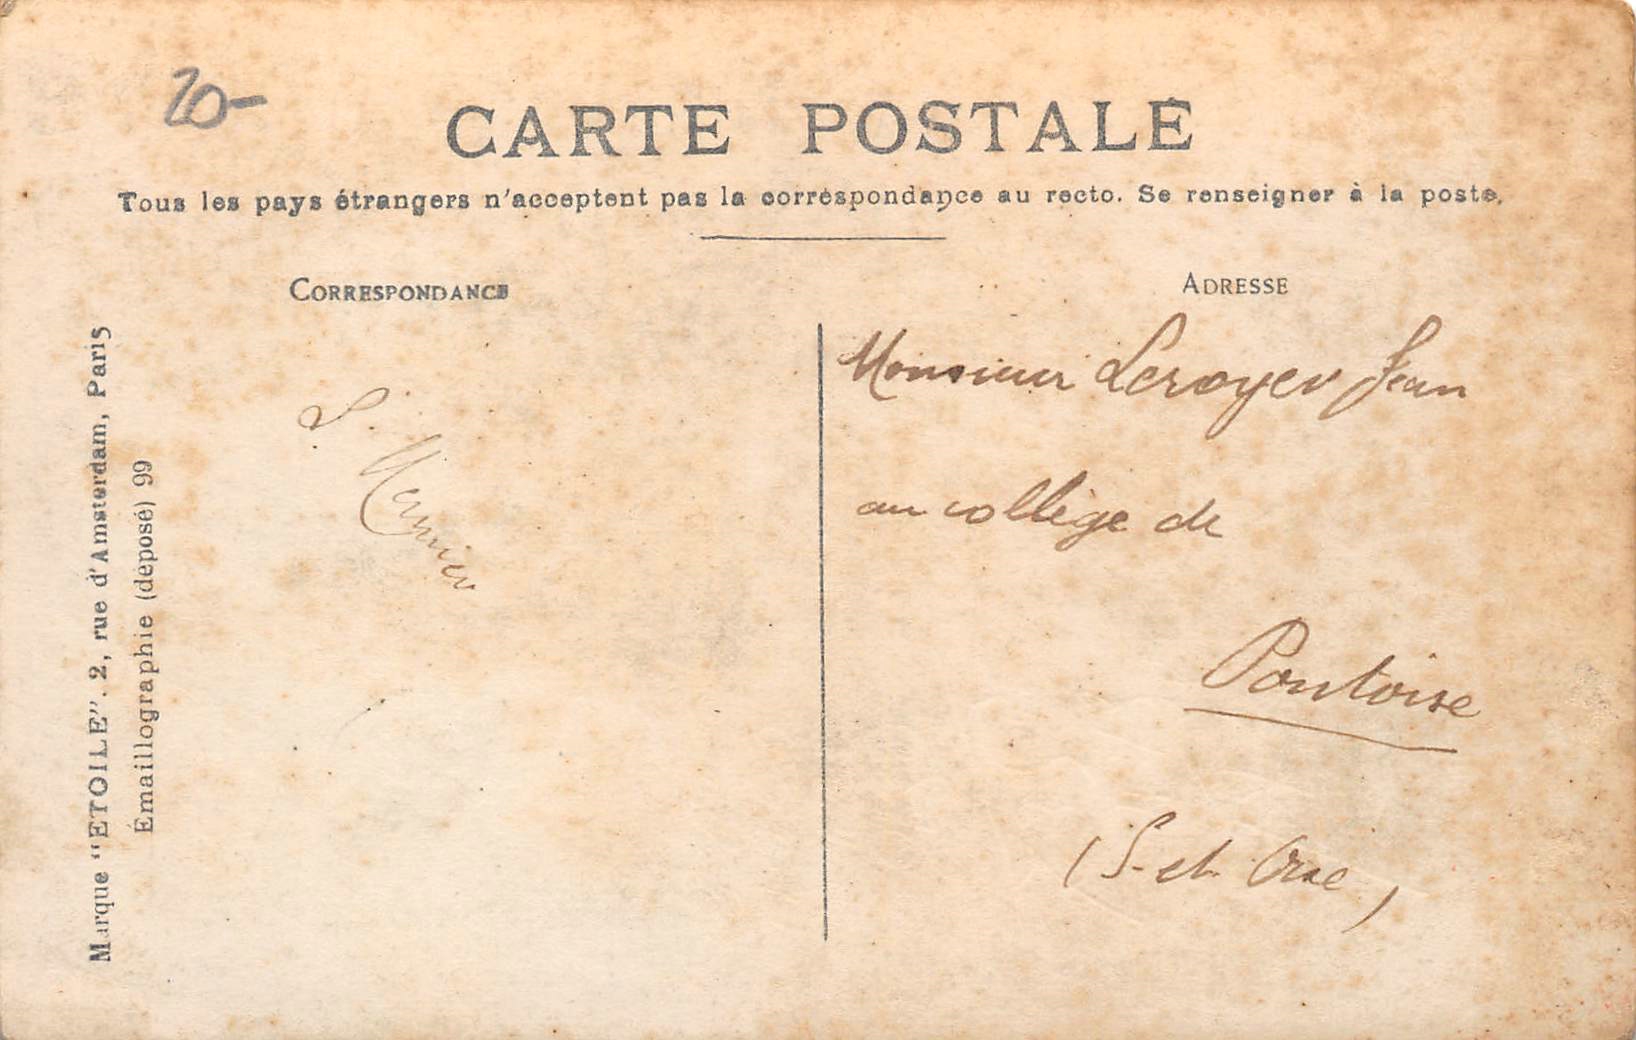 20-
CARTE POSTALE
Tous les pays étrangers n'acceptent pas la correspondance au recto. Se renseigner à la poste.
CORRESPONDANCE
ADRESSE
Marque "ETOILE". 2, rue d'Amsterdam, Paris
Émaillographie (déposé) 99
Monsieur Leroyer Jean
au collège de
Pontoise
(S. et. Oise)